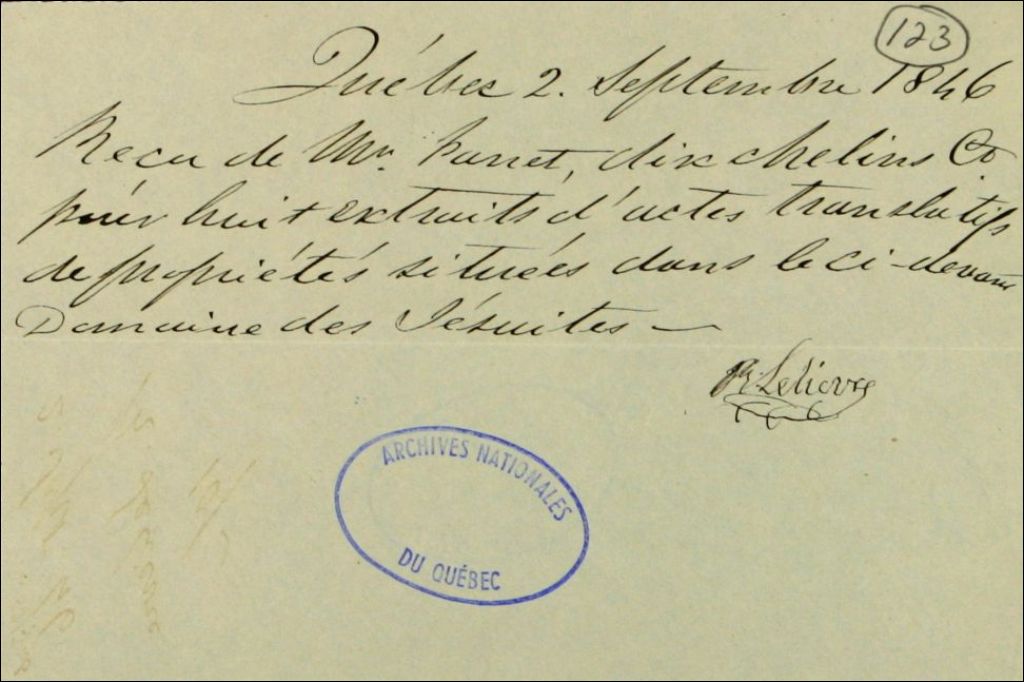 123
Québec 2. Septembre 1846
Reçu de Mr. Panet, dix chelins Ct.
pour huit extraits d'actes translatifs
de propriétés situées dans le ci-devant
Domaine des Jésuites —
R. Lelievre
ARCHIVES NATIONALES
DU QUÉBEC